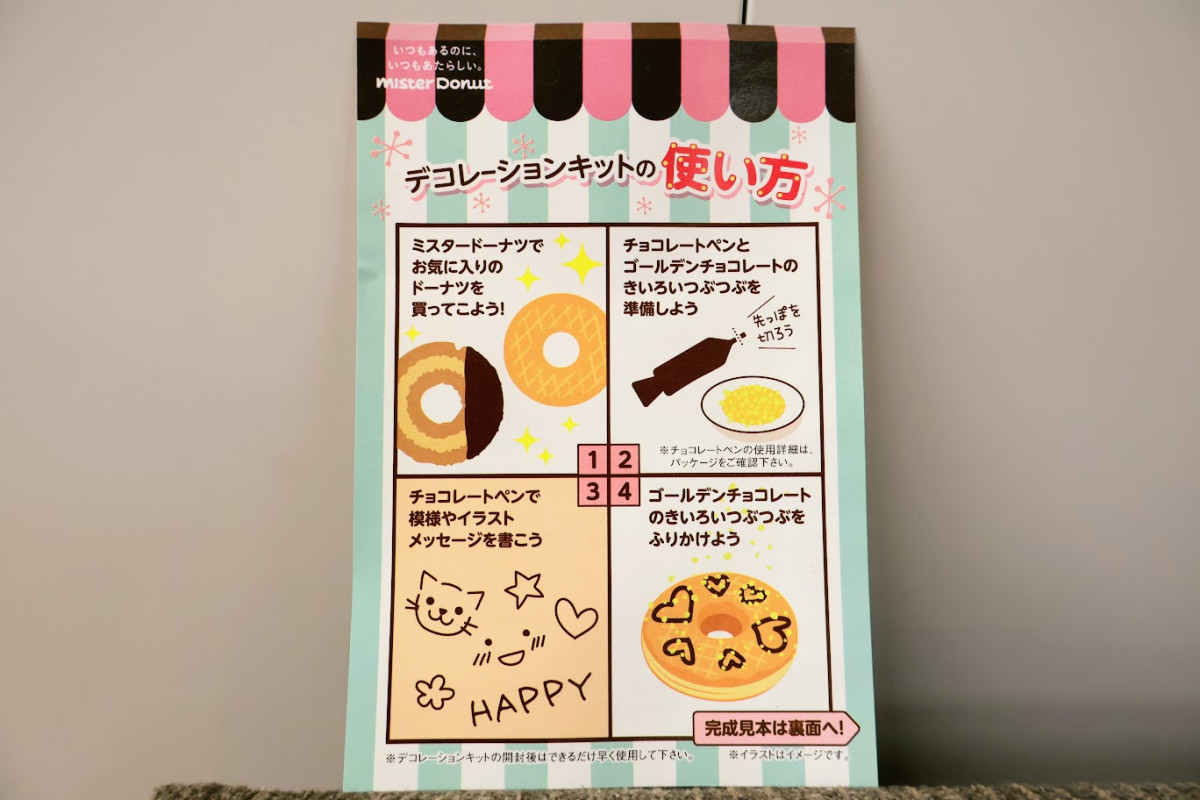 いつもあるのに、
いつもあたらしい。
mister Donut
デコレーションキットの使い方
ミスタードーナツで
お気に入りの
ドーナツを
買ってこよう!
チョコレートペンと
ゴールデンチョコレートの
きいろいつぶつぶを
準備しよう
先っぽを
切ろう
※チョコレートペンの使用詳細は、
パッケージをご確認下さい。
1 2
3 4
チョコレートペンで
模様やイラスト
メッセージを書こう
HAPPY
ゴールデンチョコレート
のきいろいつぶつぶを
ふりかけよう
完成見本は裏面へ!
※デコレーションキットの開封後はできるだけ早く使用して下さい。
※イラストはイメージです。